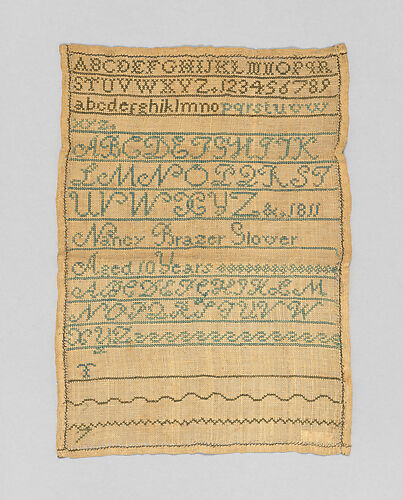 ABCDEFGHIJKLMNOPQR
STUVWXYZ. 123456789
abcdefghiklmnopqrstuvwx
xyz.
ABCDEFGHIJK
LMNOPQRST
UVWXYZ. &. 1811
Nancy Brazer Glover
Aged 10 Years
ABCDEFGHIKLM
NOPQRSTUVW
XYZ
T